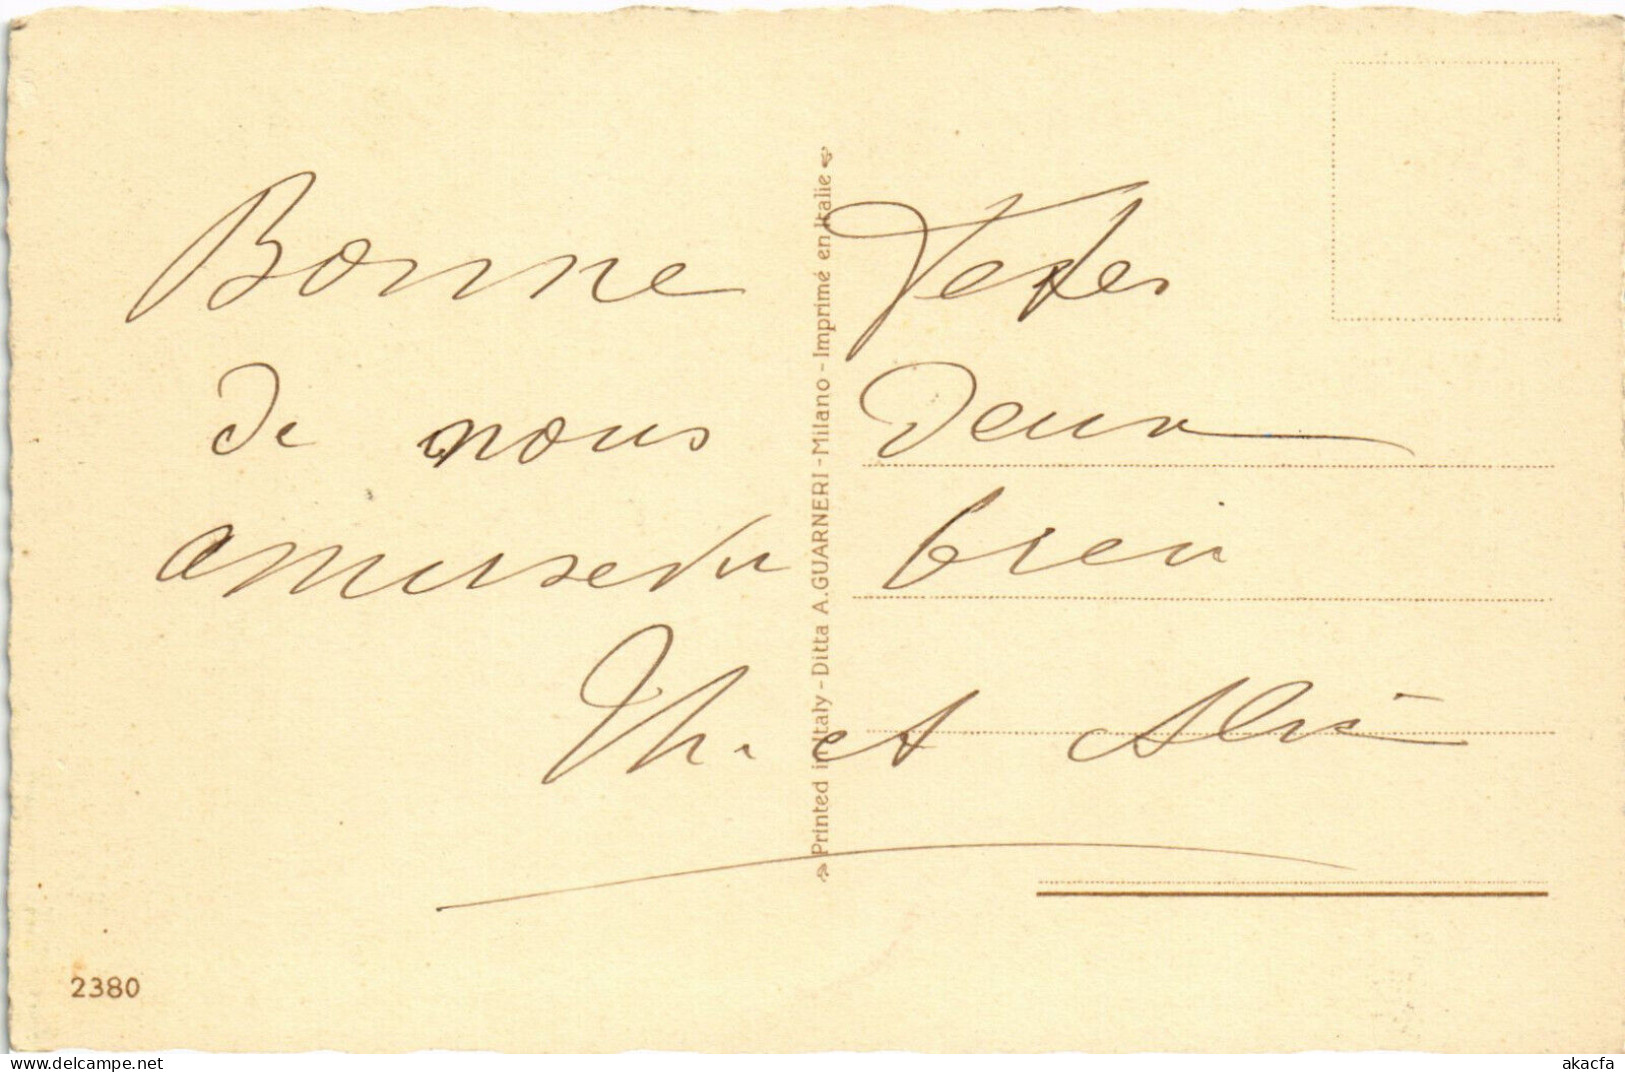 Bonne Fetes
de nous deux
amusevu bien
Th. et Alis
Printed in Italy - Ditta A. GUARNERI - Milano - Imprimé en Italie
2380
delcampe.net
akacfa